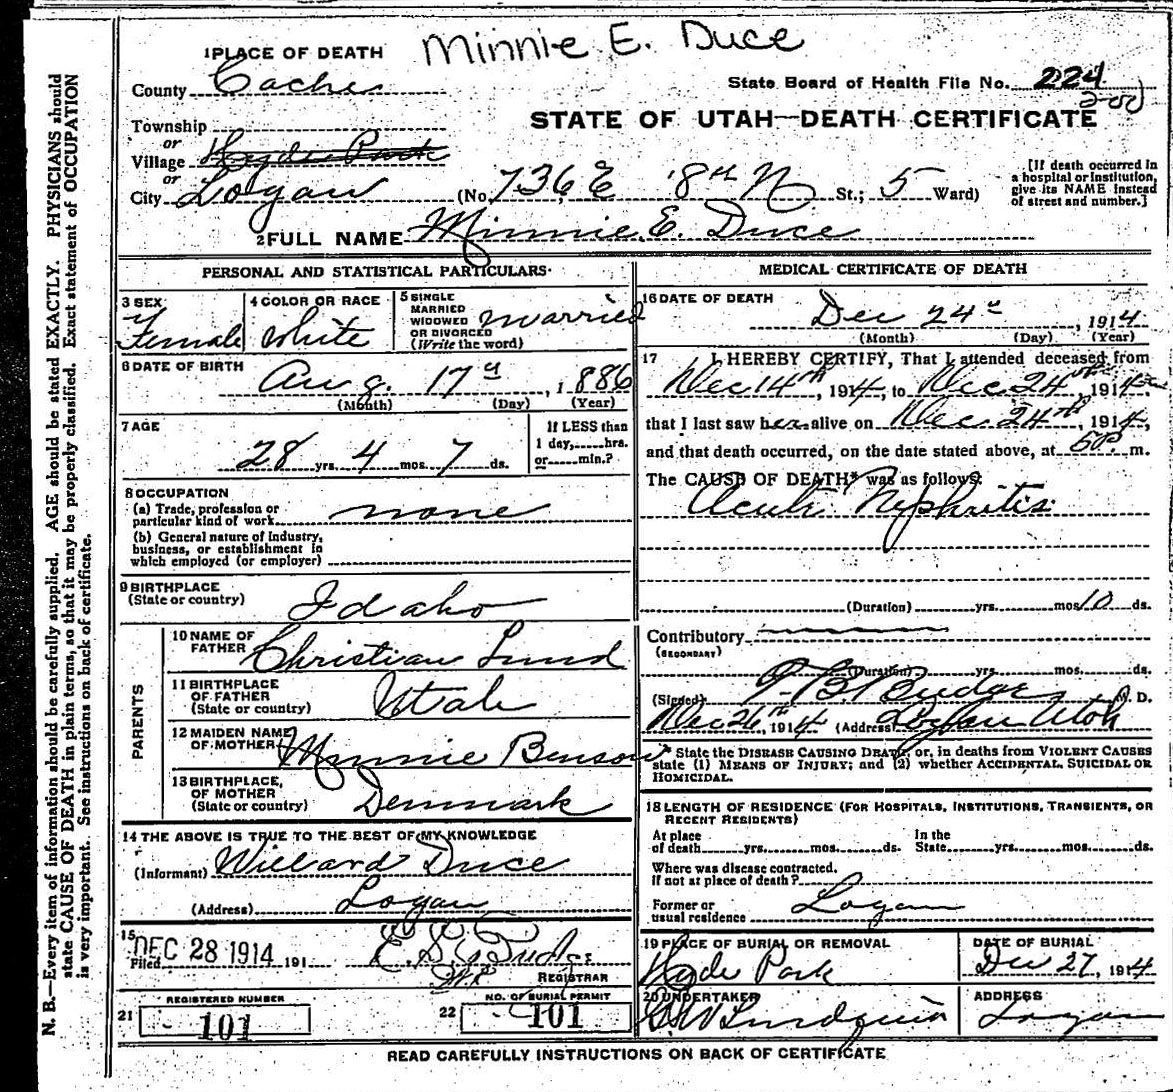 Minnie E. Duce
1 PLACE OF DEATH
County Cache
State Board of Health File No. 224
STATE OF UTAH—DEATH CERTIFICATE
Township
or
Village Hyde Park
or
City Logan (No. 736 E 8th N St.; 5 Ward)
[If death occurred in
a hospital or institution,
give its NAME instead
of street and number.]
2 FULL NAME Minnie E. Duce
PERSONAL AND STATISTICAL PARTICULARS
3 SEX
Female
4 COLOR OR RACE
White
5 SINGLE
MARRIED
WIDOWED
OR DIVORCED
(Write the word)
Married
6 DATE OF BIRTH
Aug. 17, 1886
(Month) (Day) (Year)
7 AGE
28 yrs. 4 mos. 7 ds.
If LESS than
1 day, hrs.
or min.?
8 OCCUPATION
(a) Trade, profession or
particular kind of work none
(b) General nature of Industry,
business, or establishment in
which employed (or employer)
9 BIRTHPLACE
(State or country) Idaho
PARENTS
10 NAME OF
FATHER Christian Lund
11 BIRTHPLACE
OF FATHER
(State or country) Utah
12 MAIDEN NAME
OF MOTHER Minnie Benson
13 BIRTHPLACE
OF MOTHER
(State or country) Denmark
14 THE ABOVE IS TRUE TO THE BEST OF MY KNOWLEDGE
(Informant) Willard Duce
(Address) Logan
15
Filed DEC 28 1914 191
REGISTRAR
REGISTERED NUMBER
21 101
NO. OF BURIAL PERMIT
22 101
MEDICAL CERTIFICATE OF DEATH
16 DATE OF DEATH
Dec 24, 1914
(Month) (Day) (Year)
17 I HEREBY CERTIFY, That I attended deceased from
Dec 14th, 1914, to Dec. 24th, 1914,
that I last saw her alive on Dec. 24th, 1914,
and that death occurred, on the date stated above, at 5 P. m.
The CAUSE OF DEATH* was as follows:
Acute Nephritis
(Duration) yrs. mos. 10 ds.
Contributory
(SECONDARY)
(Duration) yrs. mos. ds.
(Signed) Budge M. D.
Dec 26th, 1914 (Address) Logan Utah
* State the DISEASE CAUSING DEATH, or, in deaths from VIOLENT CAUSES
state (1) MEANS OF INJURY; and (2) whether ACCIDENTAL, SUICIDAL OR
HOMICIDAL.
18 LENGTH OF RESIDENCE (FOR HOSPITALS, INSTITUTIONS, TRANSIENTS, OR
RECENT RESIDENTS)
At place
of death yrs. mos. ds.
In the
State yrs. mos. ds.
Where was disease contracted,
if not at place of death?
Former or
usual residence Logan
19 PLACE OF BURIAL OR REMOVAL
Hyde Park
DATE OF BURIAL
Dec 27, 1914
20 UNDERTAKER
Lundquist
ADDRESS
Logan
READ CAREFULLY INSTRUCTIONS ON BACK OF CERTIFICATE
N. B.—Every item of information should be carefully supplied. AGE should be stated EXACTLY. PHYSICIANS should
state CAUSE OF DEATH in plain terms, so that it may be properly classified. Exact statement of OCCUPATION
is very important. See instructions on back of certificate.